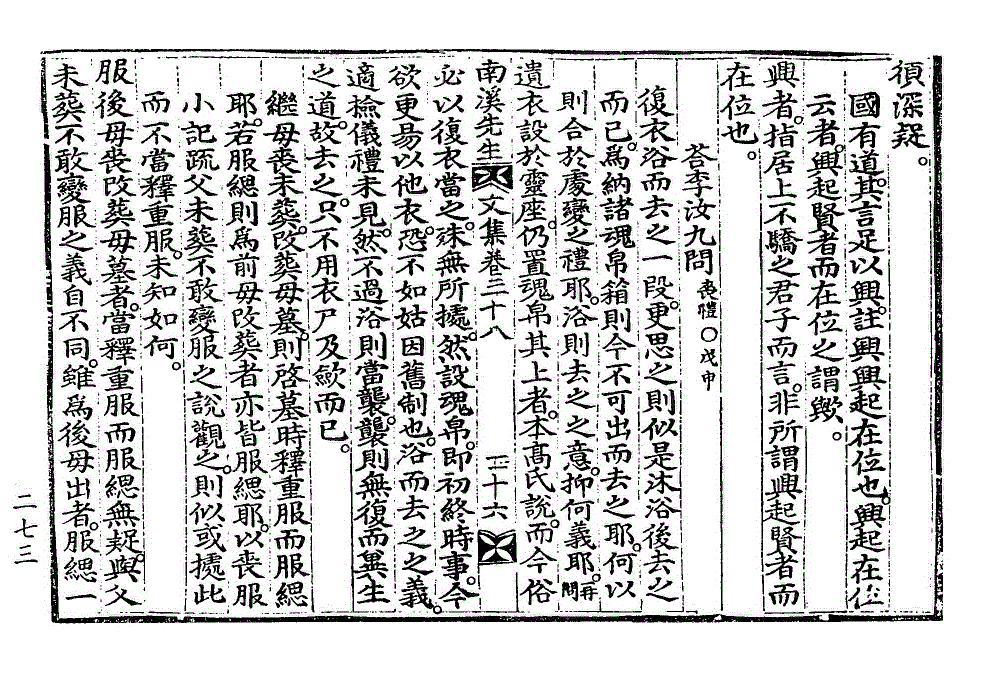 須深疑。
國有道。其言足以興。註興興起在位也。興起在位
云者。興起賢者而在位之謂歟。
興者。指居上不驕之君子而言。非所謂興起賢者而
在位也。
答李汝九問 喪禮○戊申
復衣浴而去之一段。更思之則似是沐浴後去之
而已。爲納諸魂帛箱則今不可出而去之耶。何以
則合於處變之禮耶。浴則去之之意。抑何義耶。再問
遺衣設於靈座。仍置魂帛其上者。本高氏說。而今俗
南溪先生文集卷三十八 二十六
必以復衣當之。殊無所據。然設魂帛。卽初終時事。今
欲更易以他衣。恐不如姑因舊制也。浴而去之之義。
適檢儀禮未見。然不過浴則當襲。襲則無復而異生
之道。故去之。只不用衣尸及歛而已。
繼母喪未葬。改葬母墓。則啓墓時釋重服而服緦
耶。若服緦則爲前母改葬者亦皆服緦耶。以喪服
小記疏父未葬不敢變服之說觀之。則似或據此
而不當釋重服。未知如何。
服後母喪改葬母墓者。當釋重服而服緦無疑。與父
未葬不敢變服之義自不同。雖爲後母出者。服緦一
二七三